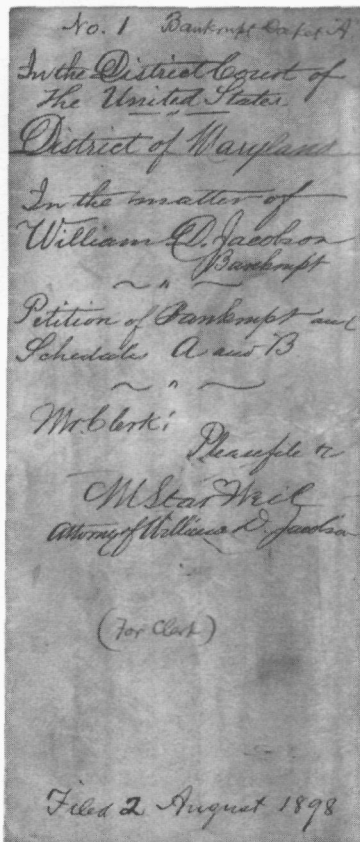 No. 1 Bankrupt Docket A
In the District Court of
the United States
District of Maryland
In the matter of
William D. Jacobson
Bankrupt
～ " ～
Petition of Bankrupt and
Schedules A and B
～ " ～
Mr. Clerk:
Please file &
M Star Weil
Attorney of William D. Jacobson
(For Clerk)
Filed 2 August 1898